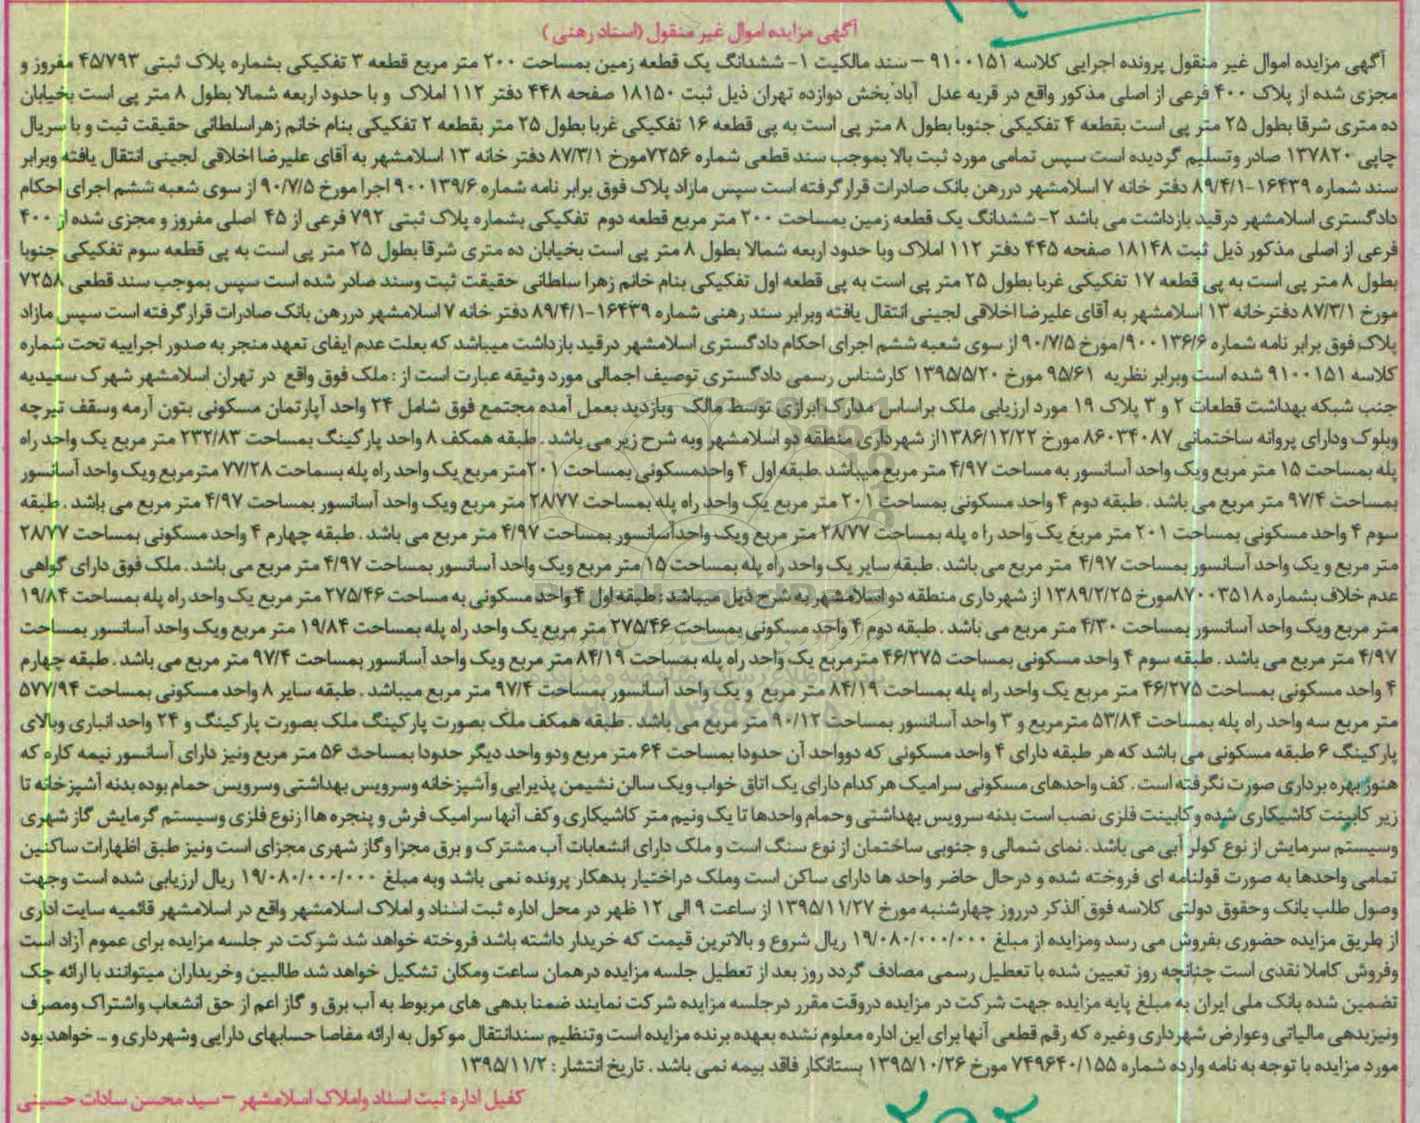 آگهی مزایده اموال غیر منقول (اسناد رهنی)
آگهی مزایده اموال غیر منقول پرونده اجرایی کلاسه ۹۱۰۰۱۵۱ – سند مالکیت ۱- ششدانگ یک قطعه زمین بمساحت ۲۰۰ متر مربع قطعه ۳ تفکیکی بشماره پلاک ثبتی ۴۵/۷۹۳ مفروز و
مجزی شده از پلاک ۴۰۰ فرعی از اصلی مذکور واقع در قریه عدل آباد بخش دوازده تهران ذیل ثبت ۱۸۱۵۰ صفحه ۴۴۸ دفتر ۱۱۲ املاک و با حدود اربعه شمالا بطول ۸ متر پی است بخیابان
ده متری شرقا بطول ۲۵ متر پی است بقطعه ۴ تفکیکی جنوبا بطول ۸ متر پی است به پی قطعه ۱۶ تفکیکی غربا بطول ۲۵ متر بقطعه ۲ تفکیکی بنام خانم زهراسلطانی حقیقت ثبت و با سریال
چاپی ۱۳۷۸۲۰ صادر وتسلیم گردیده است سپس تمامی مورد ثبت بالا بموجب سند قطعی شماره ۷۲۵۶مورخ ۸۷/۳/۱ دفتر خانه ۱۳ اسلامشهر به آقای علیرضا اخلاقی لجینی انتقال یافته وبرابر
سند شماره ۱۶۴۳۹-۸۹/۴/۱ دفتر خانه ۷ اسلامشهر دررهن بانک صادرات قرارگرفته است سپس مازاد پلاک فوق برابر نامه شماره ۹۰۰۱۳۹/۶ اجرا مورخ ۹۰/۷/۵ از سوی شعبه ششم اجرای احکام
دادگستری اسلامشهر درقید بازداشت می باشد ۲- ششدانگ یک قطعه زمین بمساحت ۲۰۰ متر مربع قطعه دوم تفکیکی بشماره پلاک ثبتی ۷۹۲ فرعی از ۴۵ اصلی مفروز و مجزی شده از ۴۰۰
فرعی از اصلی مذکور ذیل ثبت ۱۸۱۴۸ صفحه ۴۴۵ دفتر ۱۱۲ املاک وبا حدود اربعه شمالا بطول ۸ متر پی است بخیابان ده متری شرقا بطول ۲۵ متر پی است به پی قطعه سوم تفکیکی جنوبا
بطول ۸ متر پی است به پی قطعه ۱۷ تفکیکی غربا بطول ۲۵ متر پی است به پی قطعه اول تفکیکی بنام خانم زهرا سلطانی حقیقت ثبت وسند صادر شده است سپس بموجب سند قطعی ۷۲۵۸
مورخ ۸۷/۳/۱ دفترخانه ۱۳ اسلامشهر به آقای علیرضا اخلاقی لجینی انتقال یافته وبرابر سند رهنی شماره ۱۶۴۳۹-۸۹/۴/۱ دفتر خانه ۷ اسلامشهر دررهن بانک صادرات قرارگرفته است سپس مازاد
پلاک فوق برابر نامه شماره ۹۰۰۱۳۶/۶/مورخ ۹۰/۷/۵ از سوی شعبه ششم اجرای احکام دادگستری اسلامشهر درقید بازداشت میباشد که بعلت عدم ایفای تعهد منجر به صدور اجراییه تحت شماره
کلاسه ۹۱۰۰۱۵۱ شده است وبرابر نظریه ۹۵/۶۱ مورخ ۱۳۹۵/۵/۲۰ کارشناس رسمی دادگستری توصیف اجمالی مورد وثیقه عبارت است از : ملک فوق واقع در تهران اسلامشهر شهرک سعیدیه
جنب شبکه بهداشت قطعات ۲ و ۳ پلاک ۱۹ مورد ارزیابی ملک براساس مدارک ابرازی توسط مالک وبازدید بعمل آمده مجتمع فوق شامل ۲۴ واحد آپارتمان مسکونی بتون آرمه وسقف تیرچه
وبلوک ودارای پروانه ساختمانی ۸۶۰۳۴۰۸۷ مورخ ۱۳۸۶/۱۲/۲۲از شهرداری منطقه دو اسلامشهر وبه شرح زیر می باشد . طبقه همکف ۸ واحد پارکینگ بمساحت ۲۳۲/۸۳ متر مربع یک واحد راه
پله بمساحت ۱۵ متر مربع ویک واحد آسانسور به مساحت ۴/۹۷ متر مربع میباشد .طبقه اول ۴ واحدمسکونی بمساحت ۲۰۱متر مربع یک واحد راه پله بسماحت ۷۷/۲۸ مترمربع ویک واحد آسانسور
بمساحت ۹۷/۴ متر مربع می باشد . طبقه دوم ۴ واحد مسکونی بمساحت ۲۰۱ متر مربع یک واحد راه پله بمساحت ۲۸/۷۷ متر مربع ویک واحد آسانسور بمساحت ۴/۹۷ متر مربع می باشد . طبقه
سوم ۴ واحد مسکونی بمساحت ۲۰۱ متر مربع یک واحد را ه پله بمساحت ۲۸/۷۷ متر مربع ویک واحدآسانسور بمساحت ۴/۹۷ متر مربع می باشد . طبقه چهارم ۴ واحد مسکونی بمساحت ۲۸/۷۷
متر مربع و یک واحد آسانسور بمساحت ۴/۹۷ متر مربع می باشد . طبقه سایر یک واحد راه پله بمساحت ۱۵ متر مربع ویک واحد آسانسور بمساحت ۴/۹۷ متر مربع می باشد . ملک فوق دارای گواهی
عدم خلاف بشماره ۸۷۰۰۳۵۱۸مورخ ۱۳۸۹/۲/۲۵ از شهرداری منطقه دو اسلامشهر به شرح ذیل میباشد : طبقه اول ۴ واحد مسکونی به مساحت ۲۷۵/۴۶ متر مربع یک واحد راه پله بمساحت ۱۹/۸۴
متر مربع ویک واحد آسانسور بمساحت ۴/۳۰ متر مربع می باشد . طبقه دوم ۴ واحد مسکونی بمساحت ۲۷۵/۴۶ متر مربع یک واحد راه پله بمساحت ۱۹/۸۴ متر مربع ویک واحد آسانسور بمساحت
۴/۹۷ متر مربع می باشد . طبقه سوم ۴ واحد مسکونی بمساحت ۴۶/۲۷۵ مترمربع یک واحد راه پله بمساحت ۸۴/۱۹ متر مربع ویک واحد آسانسور بمساحت ۹۷/۴ متر مربع می باشد . طبقه چهارم
۴ واحد مسکونی بمساحت ۴۶/۲۷۵ متر مربع یک واحد راه پله بمساحت ۸۴/۱۹ متر مربع و یک واحد آسانسور بمساحت ۹۷/۴ متر مربع میباشد . طبقه سایر ۸ واحد مسکونی بمساحت ۵۷۷/۹۴
متر مربع سه واحد راه پله بمساحت ۵۳/۸۴ مترمربع و ۳ واحد آسانسور بمساحت ۹۰/۱۲ متر مربع می باشد . طبقه همکف ملک بصورت پارکینگ ملک بصورت پارکینگ و ۲۴ واحد انباری وبالای
پارکینگ ۶ طبقه مسکونی می باشد که هر طبقه دارای ۴ واحد مسکونی که دوواحد آن حدودا بمساحت ۶۴ متر مربع ودو واحد دیگر حدودا بمساحت ۵۶ متر مربع ونیز دارای آسانسور نیمه کاره که
هنوز بهره برداری صورت نگرفته است . کف واحدهای مسکونی سرامیک هرکدام دارای یک اتاق خواب ویک سالن نشیمن پذیرایی وآشپزخانه وسرویس بهداشتی وسرویس حمام بوده بدنه آشپزخانه تا
زیر کابینت کاشیکاری شده وکابینت فلزی نصب است بدنه سرویس بهداشتی وحمام واحدها تا یک ونیم متر کاشیکاری وکف آنها سرامیک فرش و پنجره ها از نوع فلزی وسیستم گرمایش گاز شهری
وسیستم سرمایش از نوع کولر آبی می باشد . نمای شمالی و جنوبی ساختمان از نوع سنگ است و ملک دارای انشعابات آب مشترک و برق مجزا وگاز شهری مجزای است ونیز طبق اظهارات ساکنین
تمامی واحدها به صورت قولنامه ای فروخته شده و درحال حاضر واحد ها دارای ساکن است وملک دراختیار بدهکار پرونده نمی باشد وبه مبلغ ۱۹/۰۸۰/۰۰۰/۰۰۰ ریال ارزیابی شده است وجهت
وصول طلب بانک وحقوق دولتی کلاسه فوق الذکر درروز چهارشنبه مورخ ۱۳۹۵/۱۱/۲۷ از ساعت ۹ الی ۱۲ ظهر در محل اداره ثبت اسناد و املاک اسلامشهر واقع در اسلامشهر قائمیه سایت اداری
از طریق مزایده حضوری بفروش می رسد ومزایده از مبلغ ۱۹/۰۸۰/۰۰۰/۰۰۰ ریال شروع و بالاترین قیمت که خریدار داشته باشد فروخته خواهد شد شرکت در جلسه مزایده برای عموم آزاد است
وفروش کاملا نقدی است چنانچه روز تعیین شده با تعطیل رسمی مصادف گردد روز بعد از تعطیل جلسه مزایده درهمان ساعت ومکان تشکیل خواهد شد طالبین وخریداران میتوانند با ارائه چک
تضمین شده بانک ملی ایران به مبلغ پایه مزایده جهت شرکت در مزایده دروقت مقرر درجلسه مزایده شرکت نمایند ضمنا بدهی های مربوط به آب برق و گاز اعم از حق انشعاب واشتراک ومصرف
ونیزبدهی مالیاتی وعوارض شهرداری وغیره که رقم قطعی آنها برای این اداره معلوم نشده بعهده برنده مزایده است وتنظیم سندانتقال موکول به ارائه مفاصا حسابهای دارایی وشهرداری و ... خواهد بود
مورد مزایده با توجه به نامه وارده شماره ۷۴۹۶۴۰/۱۵۵ مورخ ۱۳۹۵/۱۰/۲۶ بستانکار فاقد بیمه نمی باشد . تاریخ انتشار : ۱۳۹۵/۱۱/۲
کفیل اداره ثبت اسناد واملاک اسلامشهر – سید محسن سادات حسینی